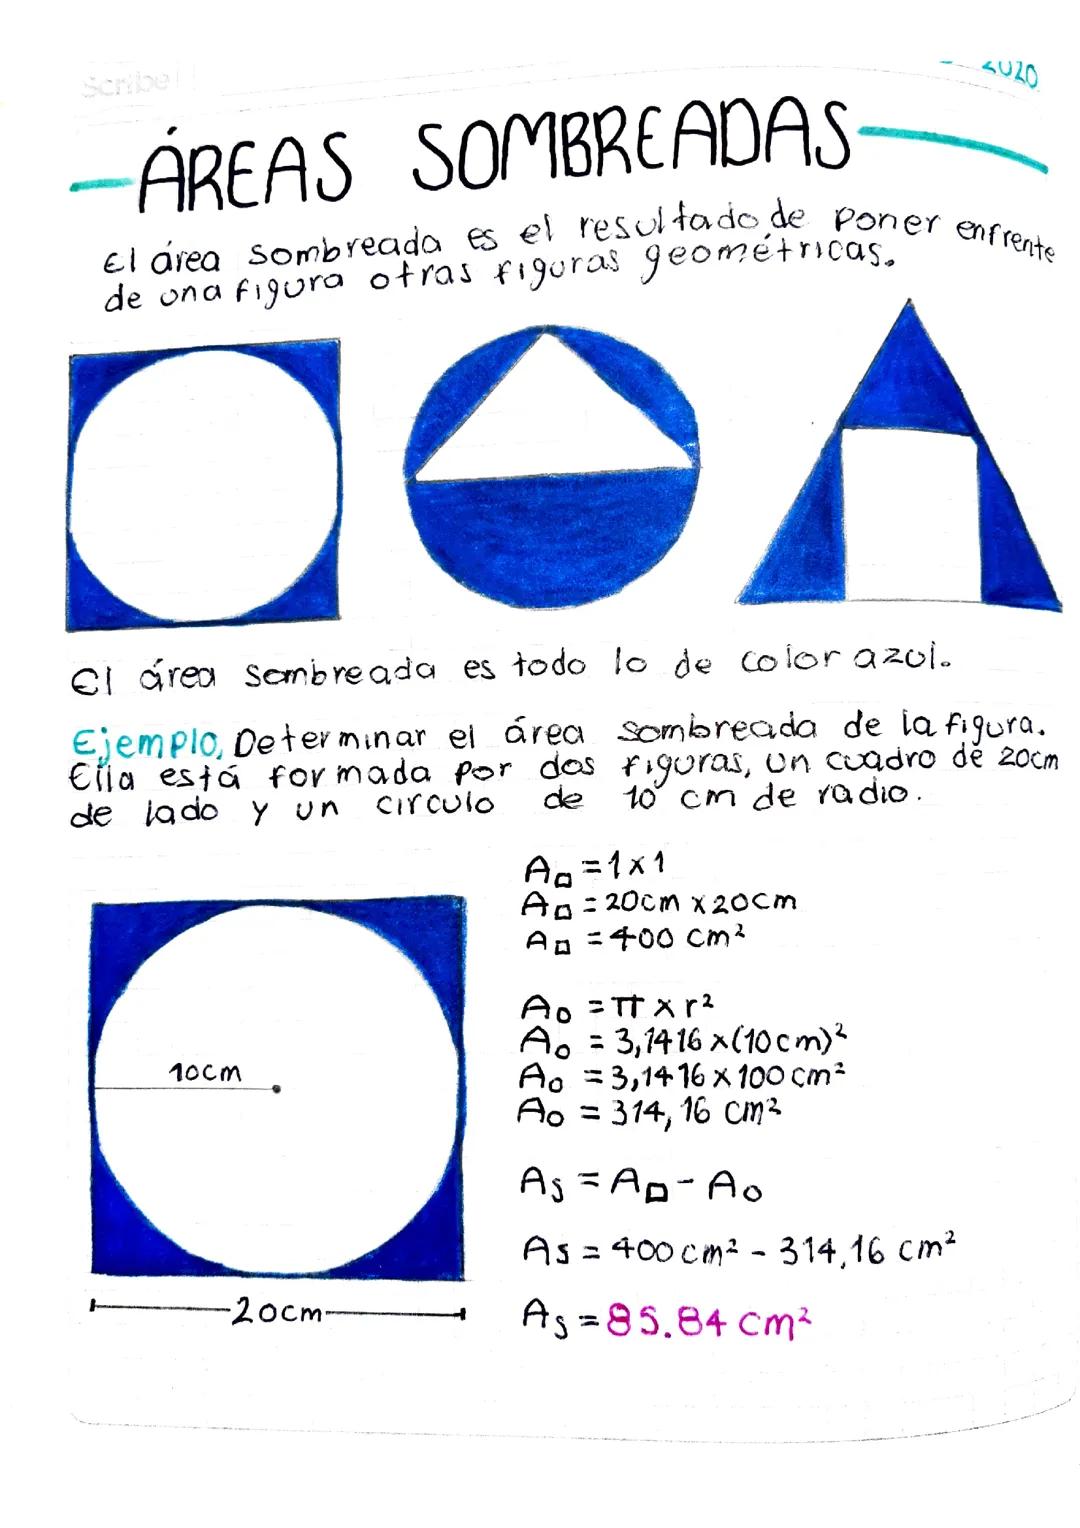 Scribe
2020
ÁREAS SOMBREADAS
El área sombreada es el resultado de poner enfrente
de una figura otras figuras geométricas.
El área sombreada es todo lo de color azul.
Ejemplo, Determinar el área sombreada de la figura.
Ella está formada por dos figuras, un cuadro de 20cm
de lado y un circulo de 10 cm de radio.
A□ = 1 x 1
A□ = 20cm x 20cm
A□ = 400 cm²
A○ = π x r²
A○ = 3,1416 x (10cm)²
10cm
A○ = 3,1416 x 100 cm²
A○ = 314,16 cm²
As = A□ - A○
As = 400 cm² - 314,16 cm²
20cm
As = 85.84 cm²